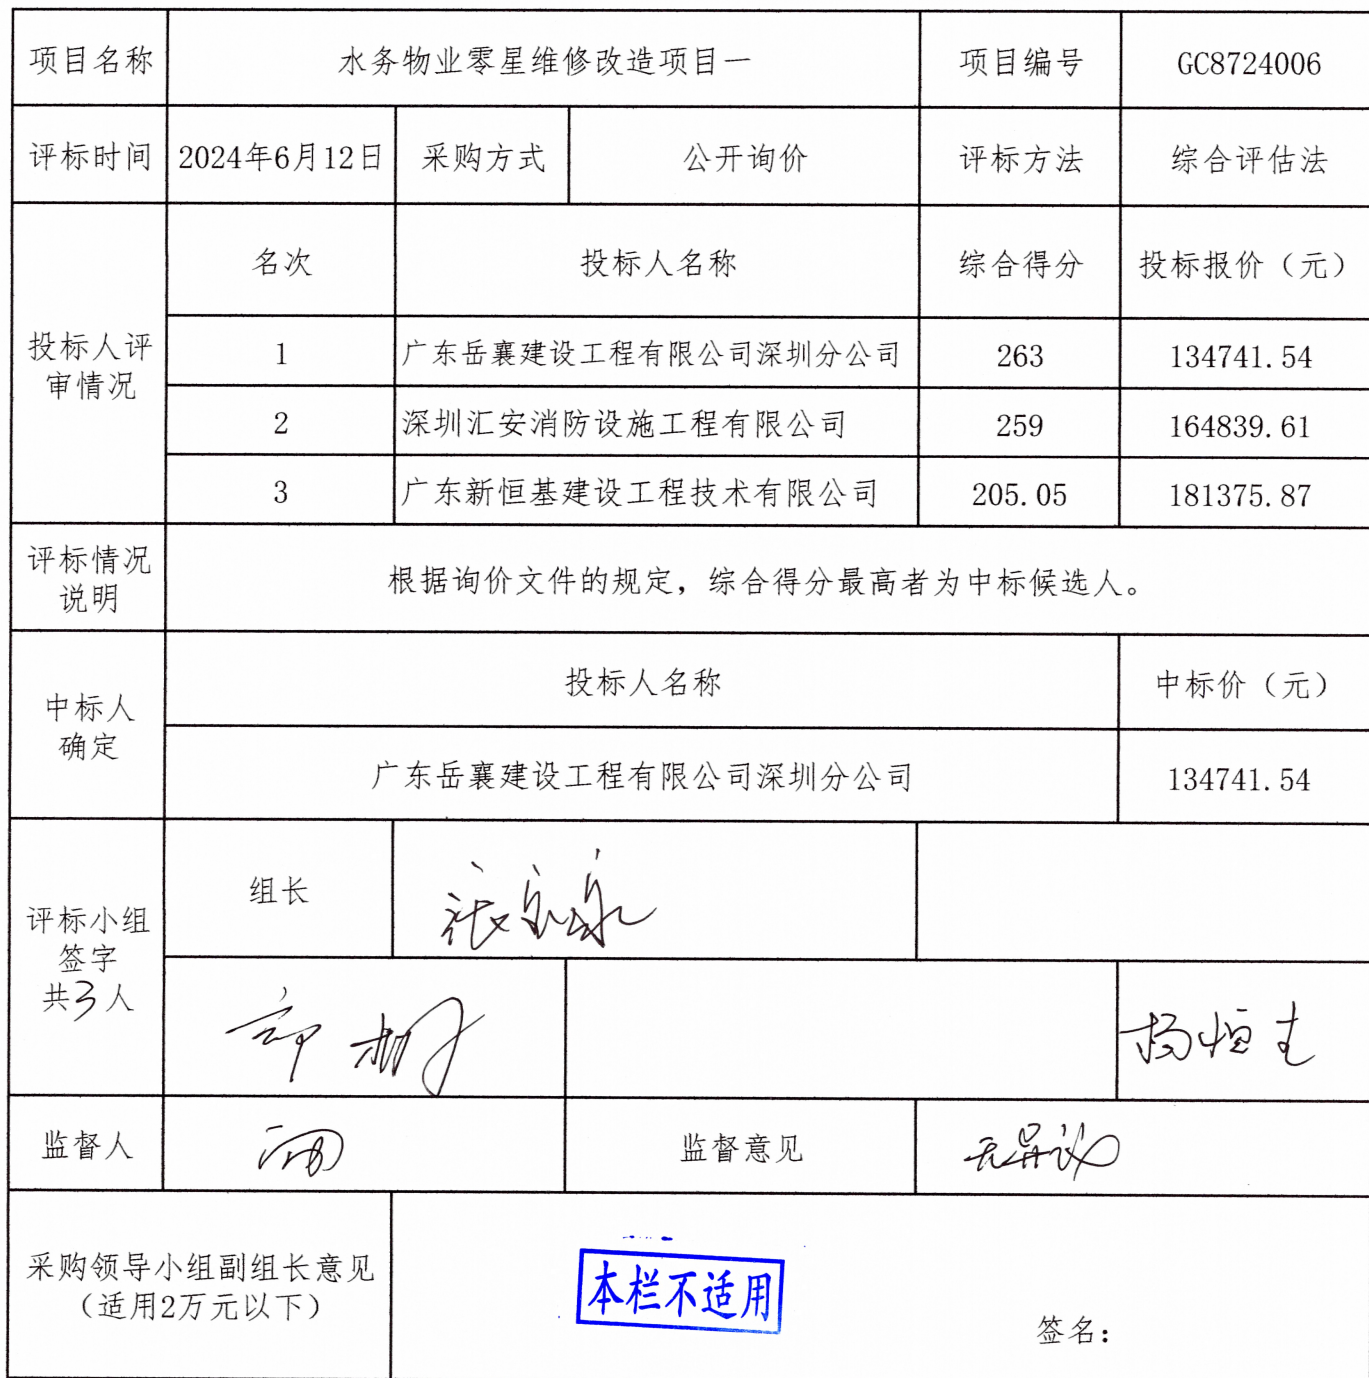 项目名称 水务物业零星维修改造项目一 项目编号 GC8724006
评标时间 2024年6月12日 采购方式 公开询价 评标方法 综合评估法
投标人评
审情况
名次 投标人名称 综合得分 投标报价（元）
1 广东岳襄建设工程有限公司深圳分公司 263 134741.54
2 深圳汇安消防设施工程有限公司 259 164839.61
3 广东新恒基建设工程技术有限公司 205.05 181375.87
评标情况
说明
根据询价文件的规定，综合得分最高者为中标候选人。
中标人
确定
投标人名称 中标价（元）
广东岳襄建设工程有限公司深圳分公司 134741.54
评标小组
签字
共3人
组长
监督人 监督意见 无异议
采购领导小组副组长意见
（适用2万元以下）
本栏不适用
签名：